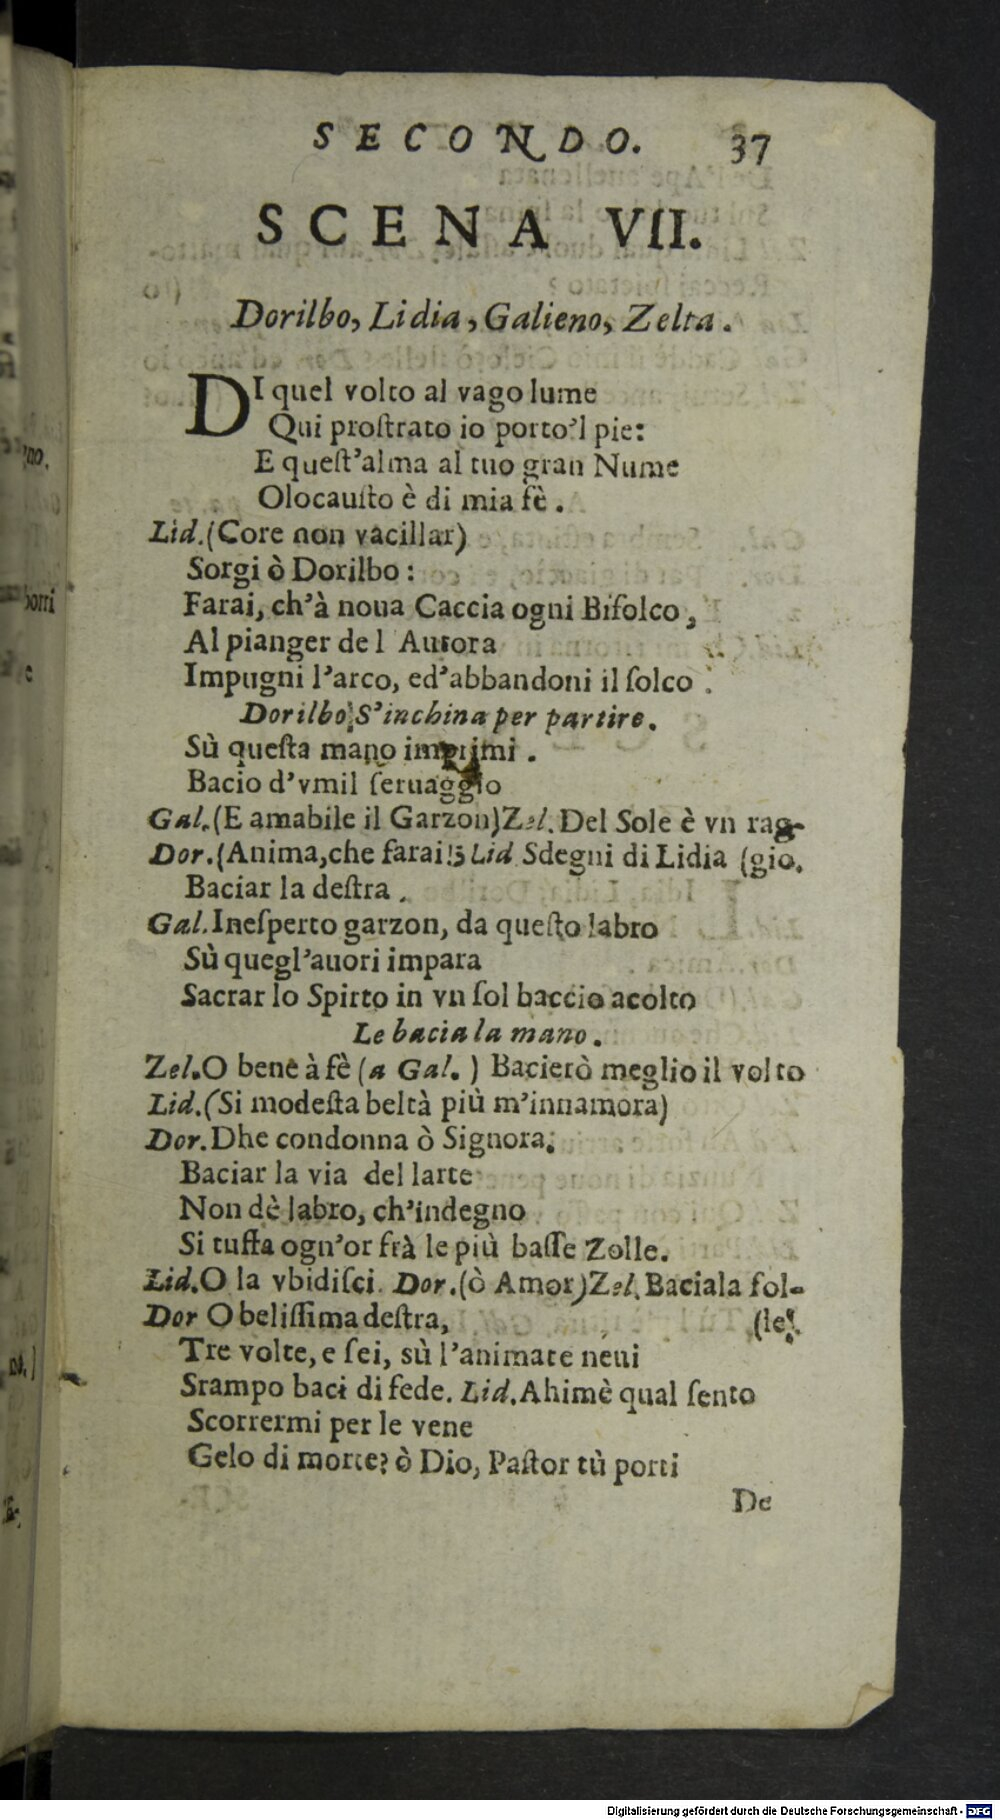 SECONDO. 37
SCENA VII.
Dorilbo, Lidia, Galieno, Zelta.
DI quel volto al vago lume
Qui proſtrato io porto'l pie:
E queſt'alma al tuo gran Nume
Olocauſto è di mia fè.
Lid. (Core non vacillar)
Sorgi ò Dorilbo:
Farai, ch'à noua Caccia ogni Bifolco,
Al pianger de l Aurora
Impugni l'arco, ed'abbandoni il ſolco.
Dorilbo S'inchina per partire.
Sù queſta mano imprimi.
Bacio d'vmil ſeruaggio
Gal. (E amabile il Garzon) Zel. Del Sole è vn rag-
Dor. (Anima, che farai!) Lid Sdegni di Lidia (gio.
Baciar la deſtra.
Gal. Ineſperto garzon, da queſto labro
Sù quegl'auori impara
Sacrar lo Spirto in vn ſol baccio acolto
Le bacia la mano.
Zel. O bene à fè (a Gal.) Bacierò meglio il volto
Lid. (Si modeſta beltà più m'innamora)
Dor. Dhe condonna ò Signora.
Baciar la via del latte
Non dè labro, ch'indegno
Si tuffa ogn'or frà le più baſſe Zolle.
Lid. O la vbidiſci. Dor. (ò Amor) Zel. Baciala fol-
Dor O beliſſima deſtra, (le!
Tre volte, e ſei, sù l'animate neui
Srampo baci di fede. Lid. Ahimè qual ſento
Scorrermi per le vene
Gelo di morte? ò Dio, Paſtor tù porti
De
no.
borri
Digitalisierung gefördert durch die Deutsche Forschungsgemeinschaft - DFG